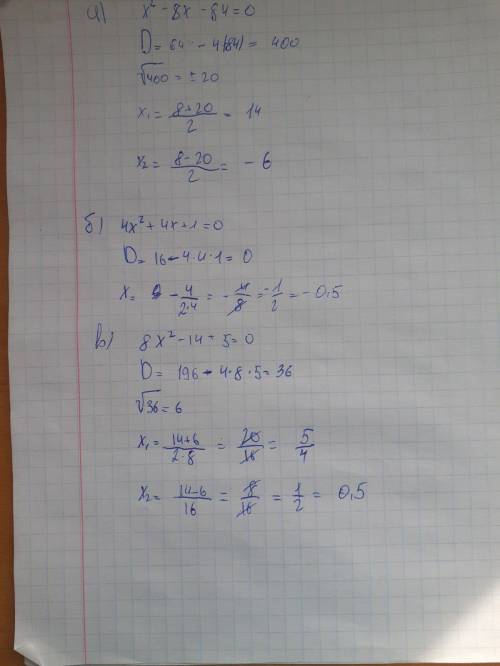 а) x² - 8x - 84 = 0
D = 64 - 4(84) = 400
√400 = ± 20
x₁ = (8+20)/2 = 14
x₂ = (8-20)/2 = - 6
б) 4x² + 4x + 1 = 0
D = 16 - 4·4·1 = 0
x = - 4/(2·4) = - 4/8 = - 1/2 = - 0,5
в) 8x² - 14 + 5 = 0
D = 196 - 4·8·5 = 36
√36 = 6
x₁ = (14+6)/(2·8) = 20/16 = 5/4
x₂ = (14-6)/16 = 8/16 = 1/2 = 0,5